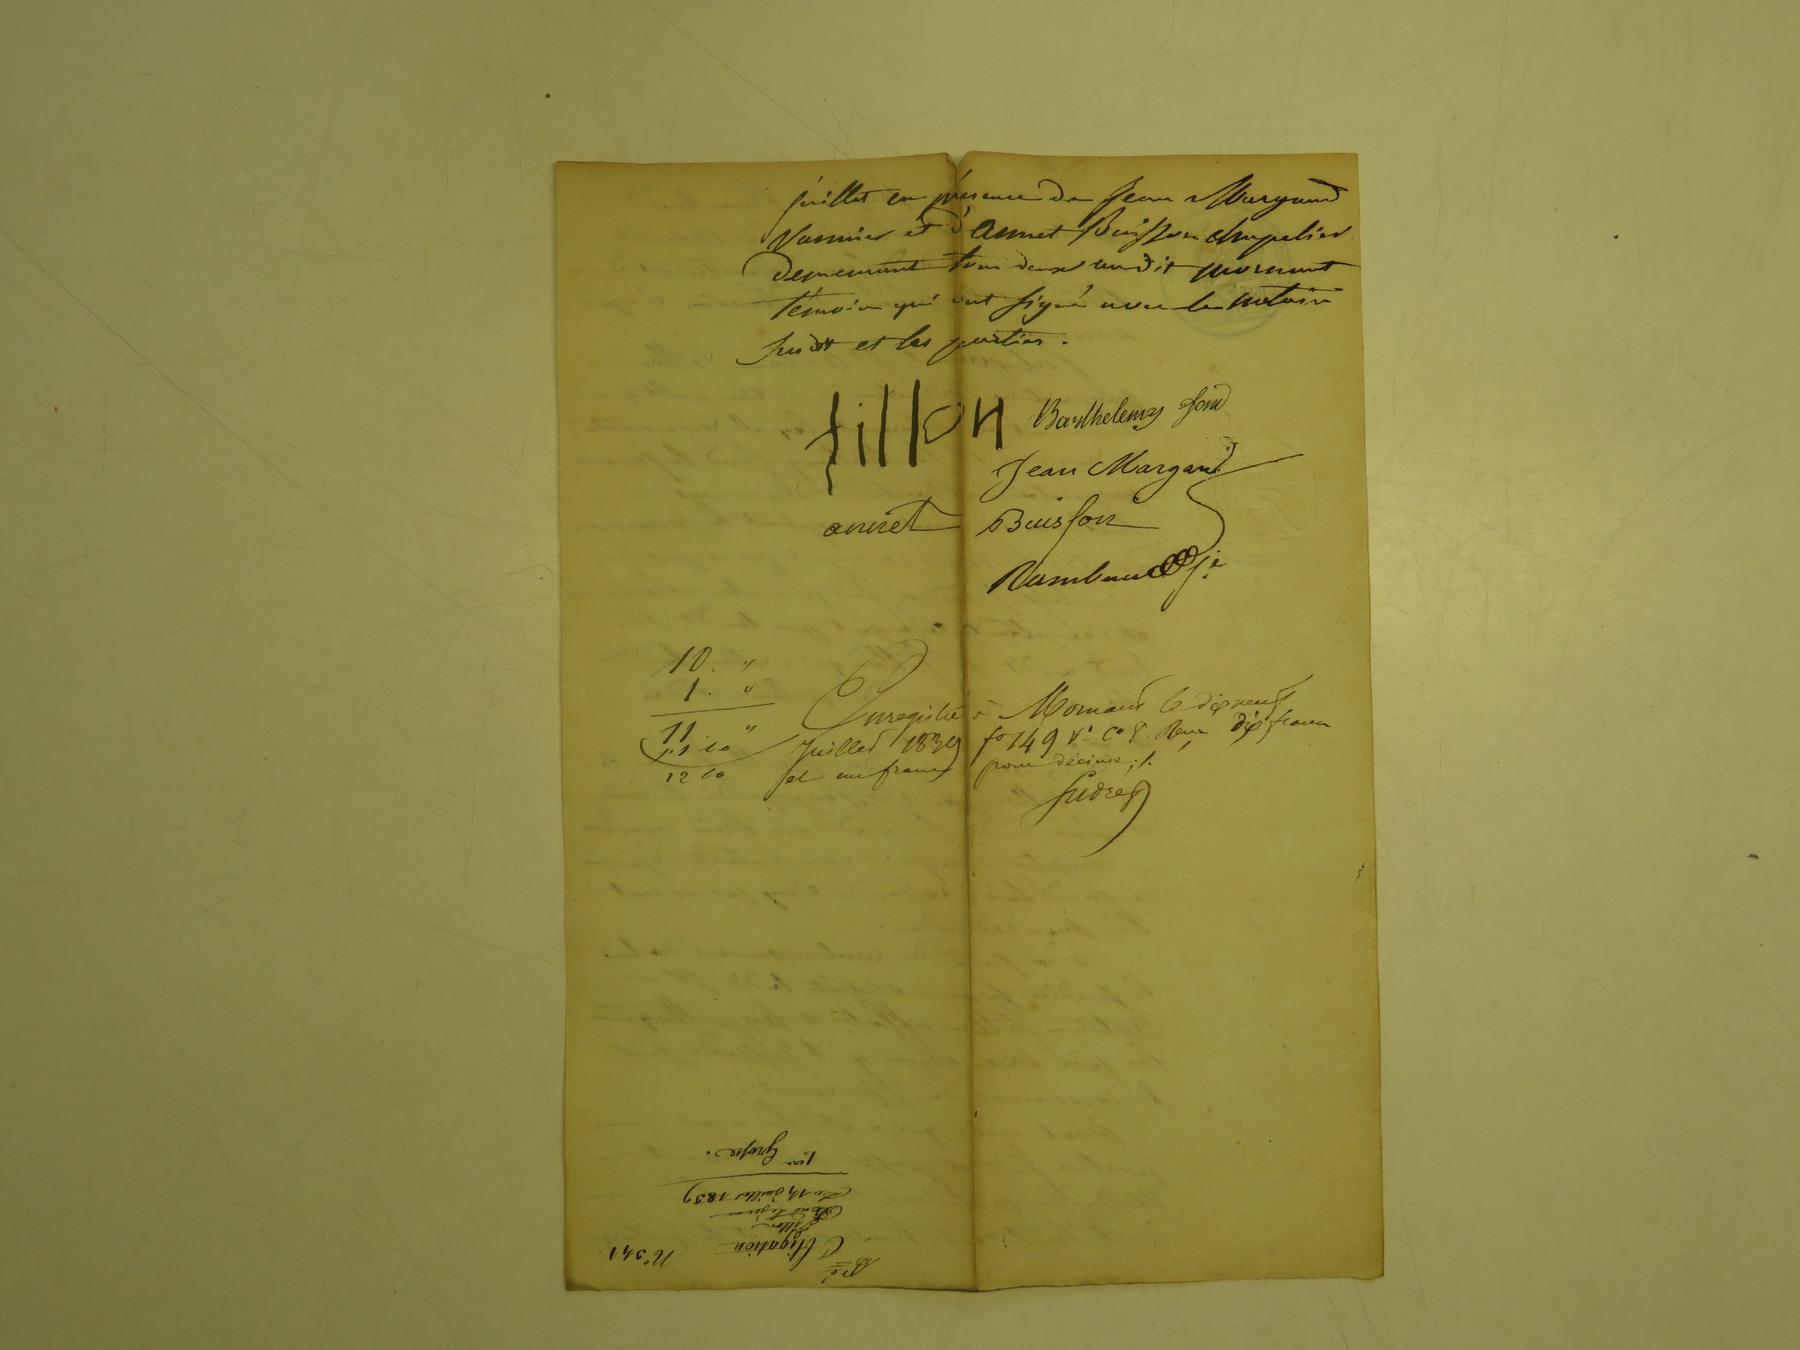 juillet en présence de Jean Margand
Vannier et d'Annet Buisson chapelier
demeurant tous deux audit mornant
témoins qui ont signé avec le notaire
susdit et les parties.
fillon Barthelemy fond
Jean Margand
annet Buisson
Rambaud
10. "
1. "
11 "
1.60
12 60
Enregistré à Mornant le dix neuf
Juillet 1839 fo 149 Vo Co 8. Reçu dix francs
et un franc pour décime ;/.
Sudre
No 341
Bté
Obligation
Fillon
Fond le jeune
Du 14 Juillet 1839
1ère Grosse.